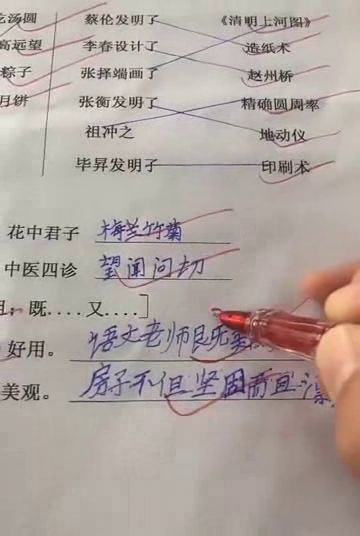 吃汤圆 蔡伦发明了 《清明上河图》
高远望 李春设计了 造纸术
粽子 张择端画了 赵州桥
月饼 张衡发明了 精确圆周率
祖冲之 地动仪
毕昇发明了 印刷术
花中君子 梅兰竹菊
中医四诊 望闻问切
:既....又....]
好用。 语文老师既
美观。 房子不但坚固而且漂